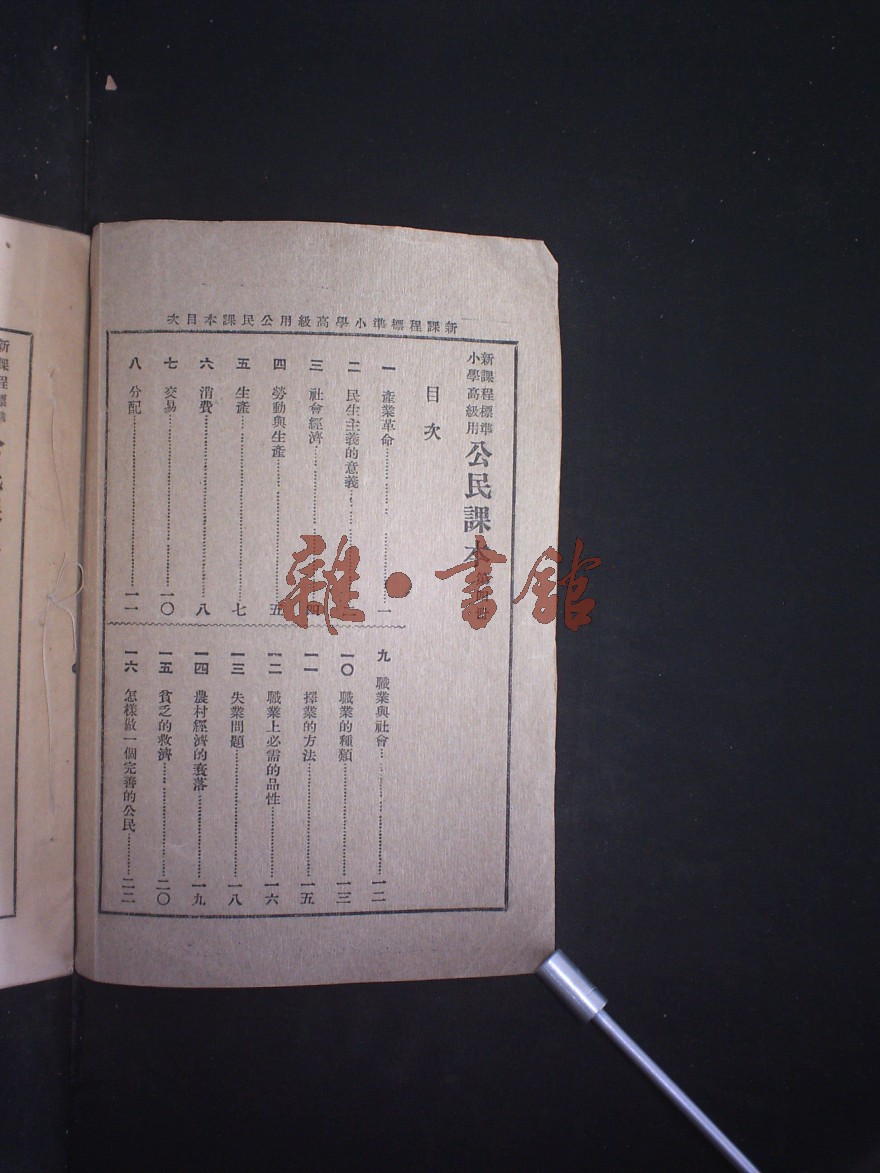 新課程標準小學高級用公民課本目次
新課程標準
小學高級用
公民課本
目次
一 產業革命 一
二 民生主義的意義
三 社會經濟 四
四 勞動與生產 五
五 生產 七
六 消費 八
七 交易 一〇
八 分配 一一
九 職業與社會 一二
一〇 職業的種類 一三
一一 擇業的方法 一五
一二 職業上必需的品性 一六
一三 失業問題 一八
一四 農村經濟的衰落 一九
一五 貧乏的救濟 二〇
一六 怎樣做一個完善的公民 二二
新課程標準
雜·書館